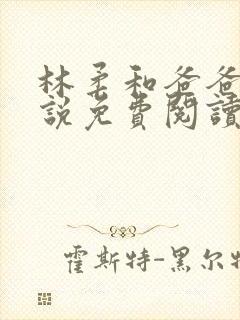 林柔和爸爸
說免費閱讀
霍斯特-黑尔特